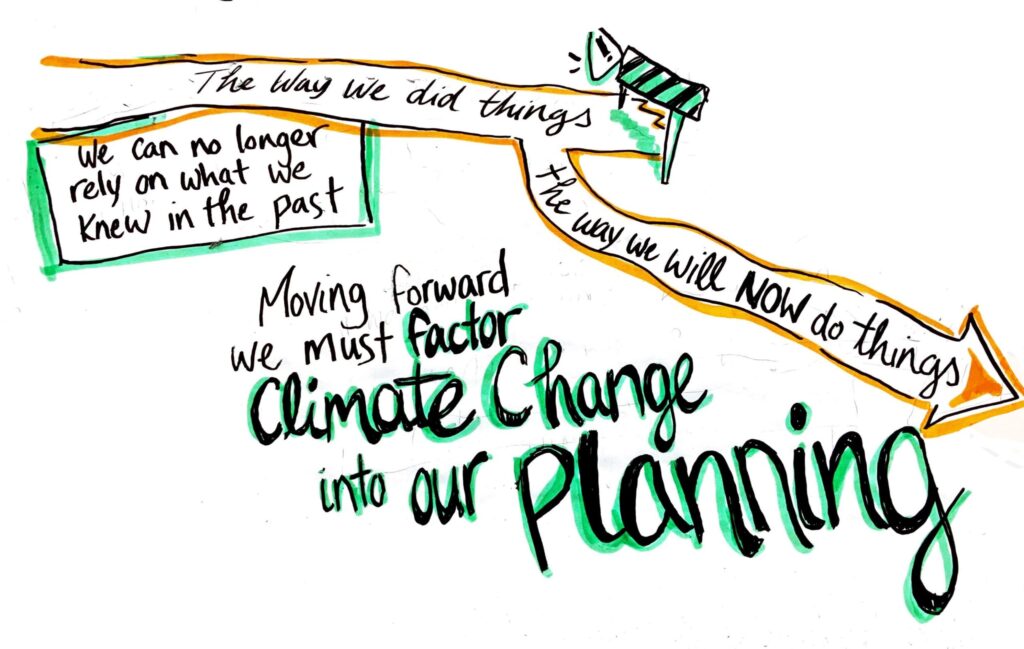 The Way we did things
!
We can no longer
rely on what we
knew in the past
the way we will NOW do things
Moving forward
we must factor
Climate Change
into our planning